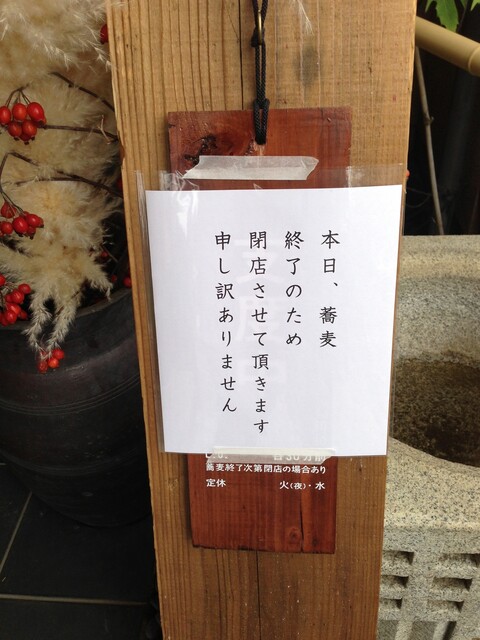 本日、蕎麦
終了のため
閉店させて頂きます
申し訳ありません
蕎麦終了次第閉店の場合あり
定休 火(夜)・水